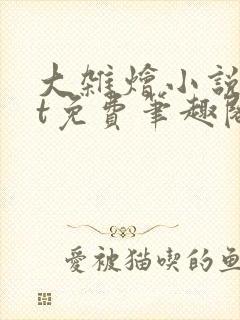 大雜燴小說
t免費筆趣閣
愛被猫喫的鱼